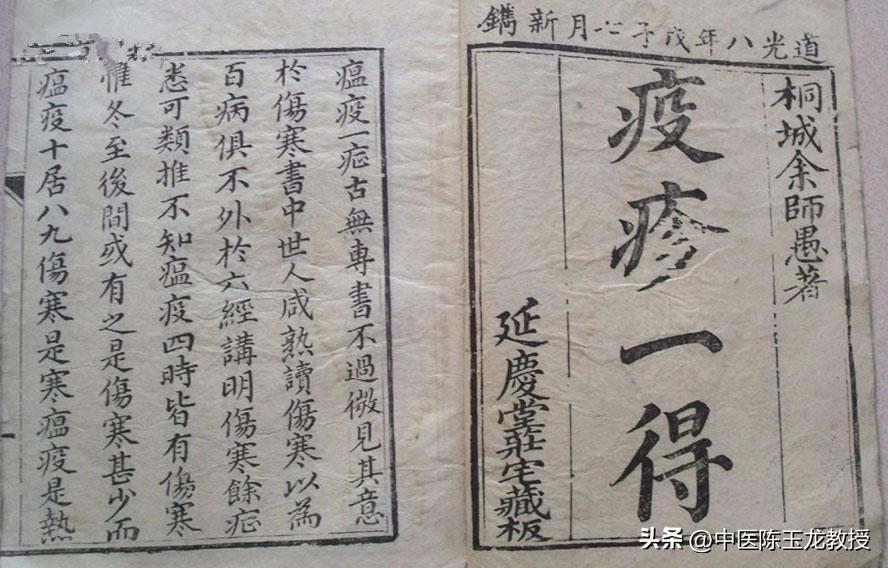 道光八年戊子七月新鐫
桐城余師愚著
疫疹一得
延慶堂莊宅藏板
瘟疫一症古無專書不過微見其意
於傷寒書中世人咸熟讀傷寒以為
百病俱不外於六經講明傷寒餘症
悉可類推不知瘟疫四時皆有傷寒
惟冬至後間或有之是傷寒甚少而
瘟疫十居八九傷寒是寒瘟疫是熱
头条 @中医陈玉龙教授